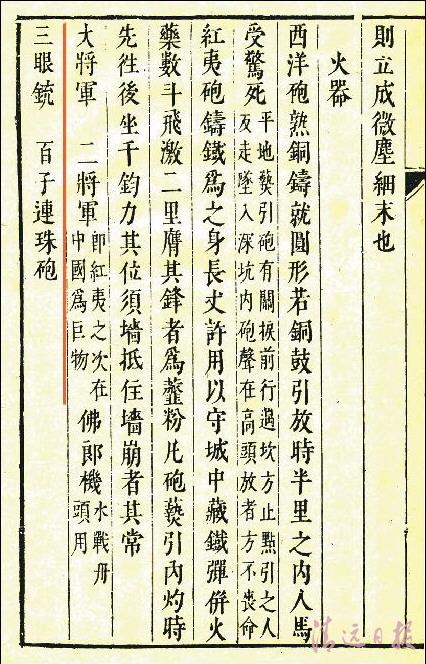 則立成微塵細末也
火器
西洋砲熟銅鑄就圓形若銅鼓引放時半里之內人馬
受驚死平地爇引砲有關捩前行遇坎方止點引之人反走墜入深坑內砲聲在高頭放者方不喪命
紅夷砲鑄鐵爲之身長丈許用以守城中藏鐵彈併火
藥數斗飛激二里膺其鋒者爲虀粉凡砲爇引內灼時
先往後坐千鈞力其位須墻抵住墻崩者其常
大將軍 二將軍即紅夷之次在中國爲巨物佛郎機水戰舟頭用
三眼銃 百子連珠砲
清远日报